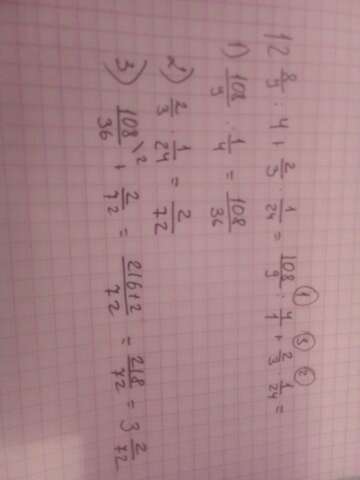 12 8/9 : 4 + 2/3 · 1/24 = 108/9 : 4/1 + 2/3 · 1/24 =
① ③ ②
1) 108/9 · 1/4 = 108/36
2) 2/3 · 1/24 = 2/72
3) 108/36 \2 + 2/72 = 216+2/72 = 218/72 = 3 2/72